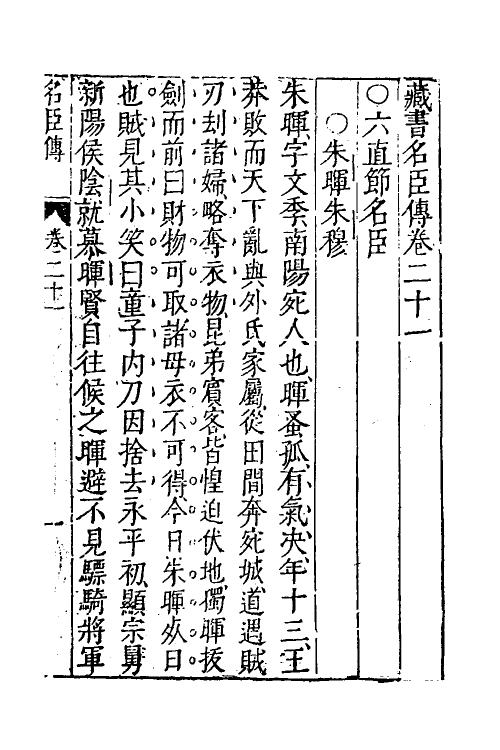 藏書名臣傳卷二十一
○六直節名臣
○朱暉朱穆
朱暉字文季南陽宛人也暉蚤孤有氣决年十三王
莽敗而天下亂與外氏家屬從田間奔宛城道遇賊
刃刦諸婦略奪衣物昆弟賓客皆惶迫伏地獨暉拔
劍而前曰財物可取諸母衣不可得今日朱暉死日
也賊見其小笑曰童子内刀因捨去永平初顯宗舅
新陽侯陰就慕暉賢自往候之暉避不見驃騎將軍
名臣傳 卷二十一 一